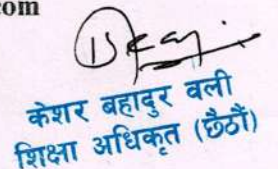 com
केशर बहादुर वली
शिक्षा अधिकृत (छैठौं)